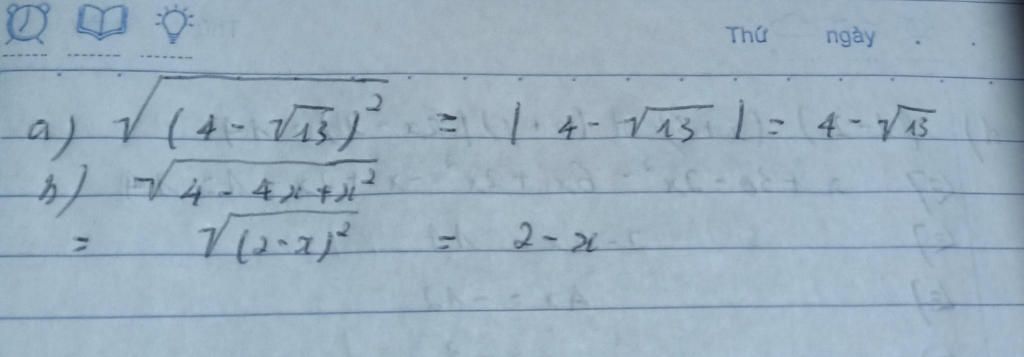 Thứ ngày . .
a) √(4-√13)² = |4-√13| = 4-√13
b) √4-4x+x²
= √(2-x)² = 2-x